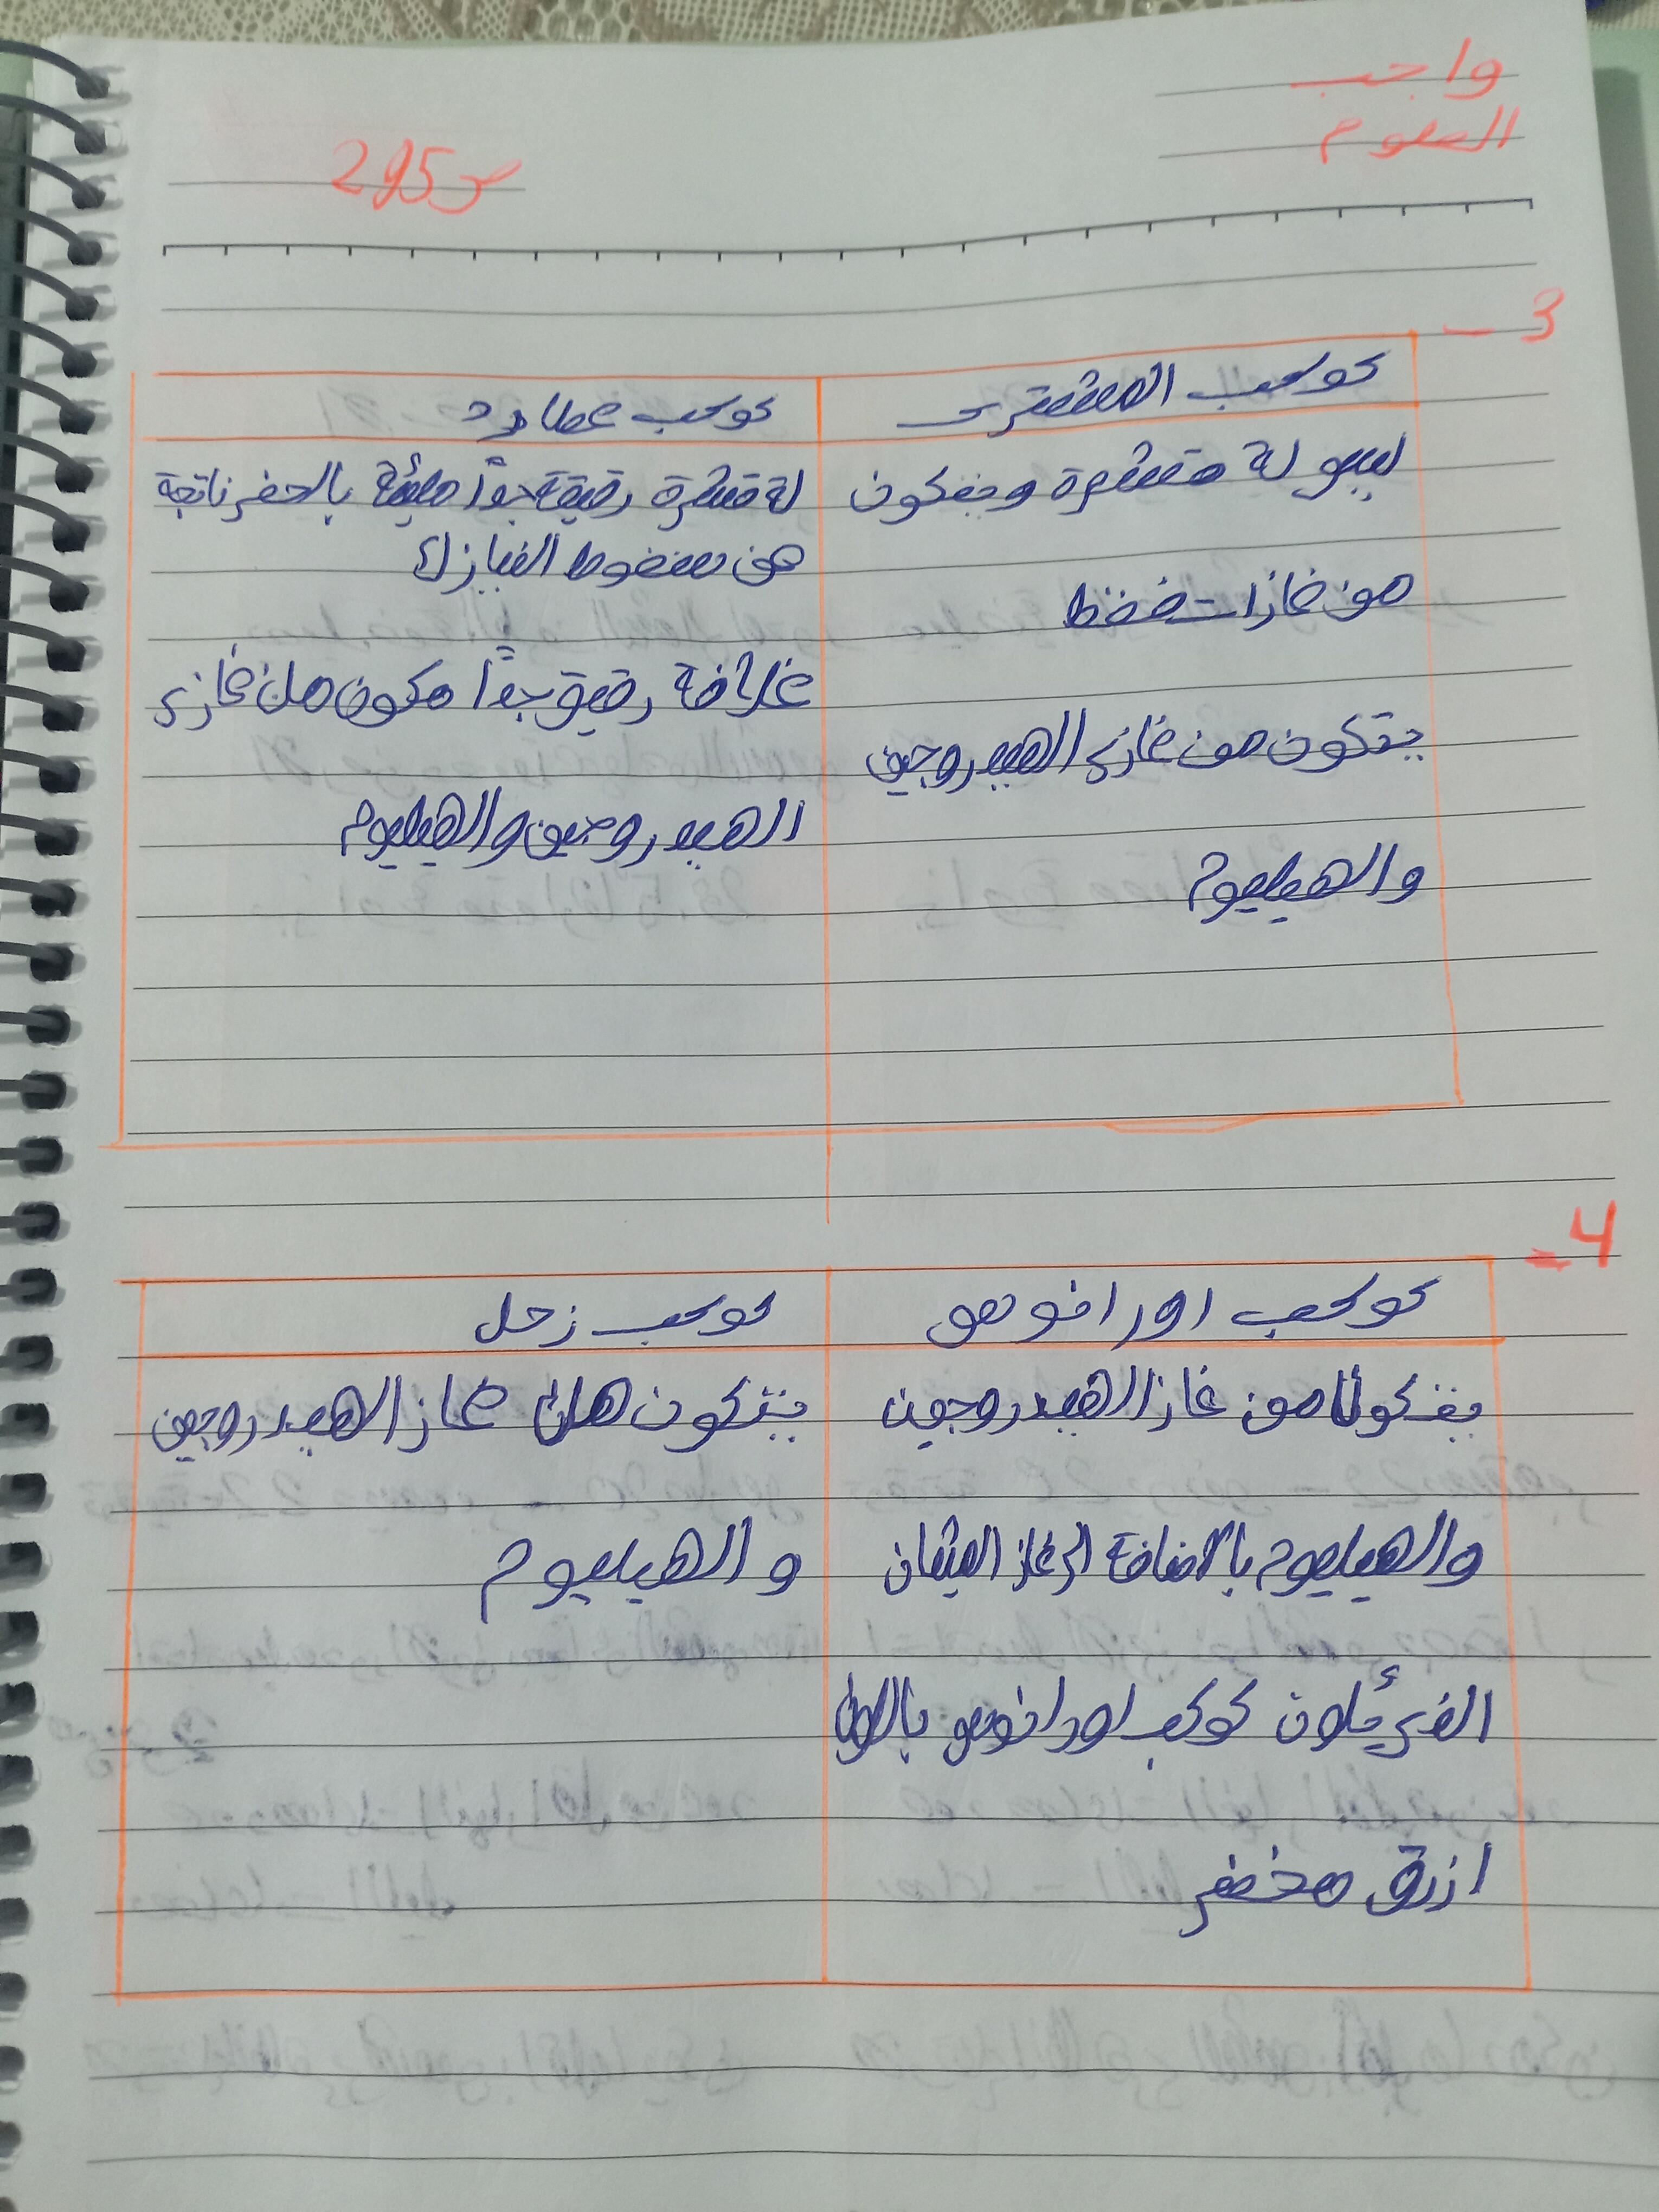 واجب
العلوم
ص 295
3 -
كوكب المشتري
ليس له قشرة ويتكون
من غازات فقط
يتكون من غازي الهيدروجين
والهيليوم
كوكب عطارد
له قشرة رقيقة جداً مليئة بالحفر ناتجة
من سقوط النيازك
غلافة رقيق جداً مكون من غازي
الهيدروجين والهيليوم
4 =
كوكب اورانوس
يتكون من غاز الهيدروجين
والهيليوم بالاضافة الى غاز الميثان
الذي يُلون كوكب اورانوس باللون
ازرق مخضر
كوكب زحل
يتكون من غاز الهيدروجين
والهيليوم